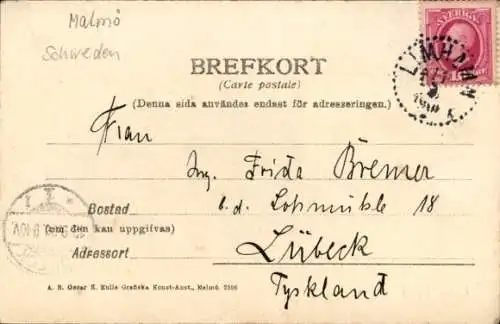 Malmö
Schweden
SVERIGE
LIMHAMN
BREFKORT
(Carte postale)
(Denna sida användes endast för adresseringen.)
Frau
Ing. Frida Bremer
Bostad b. d. Lohmühle 18
(om den kan uppgifvas)
Lübeck
Adressort
Tyskland
A. B. Oscar E. Kulls Grafiska Konst-Anst., Malmö